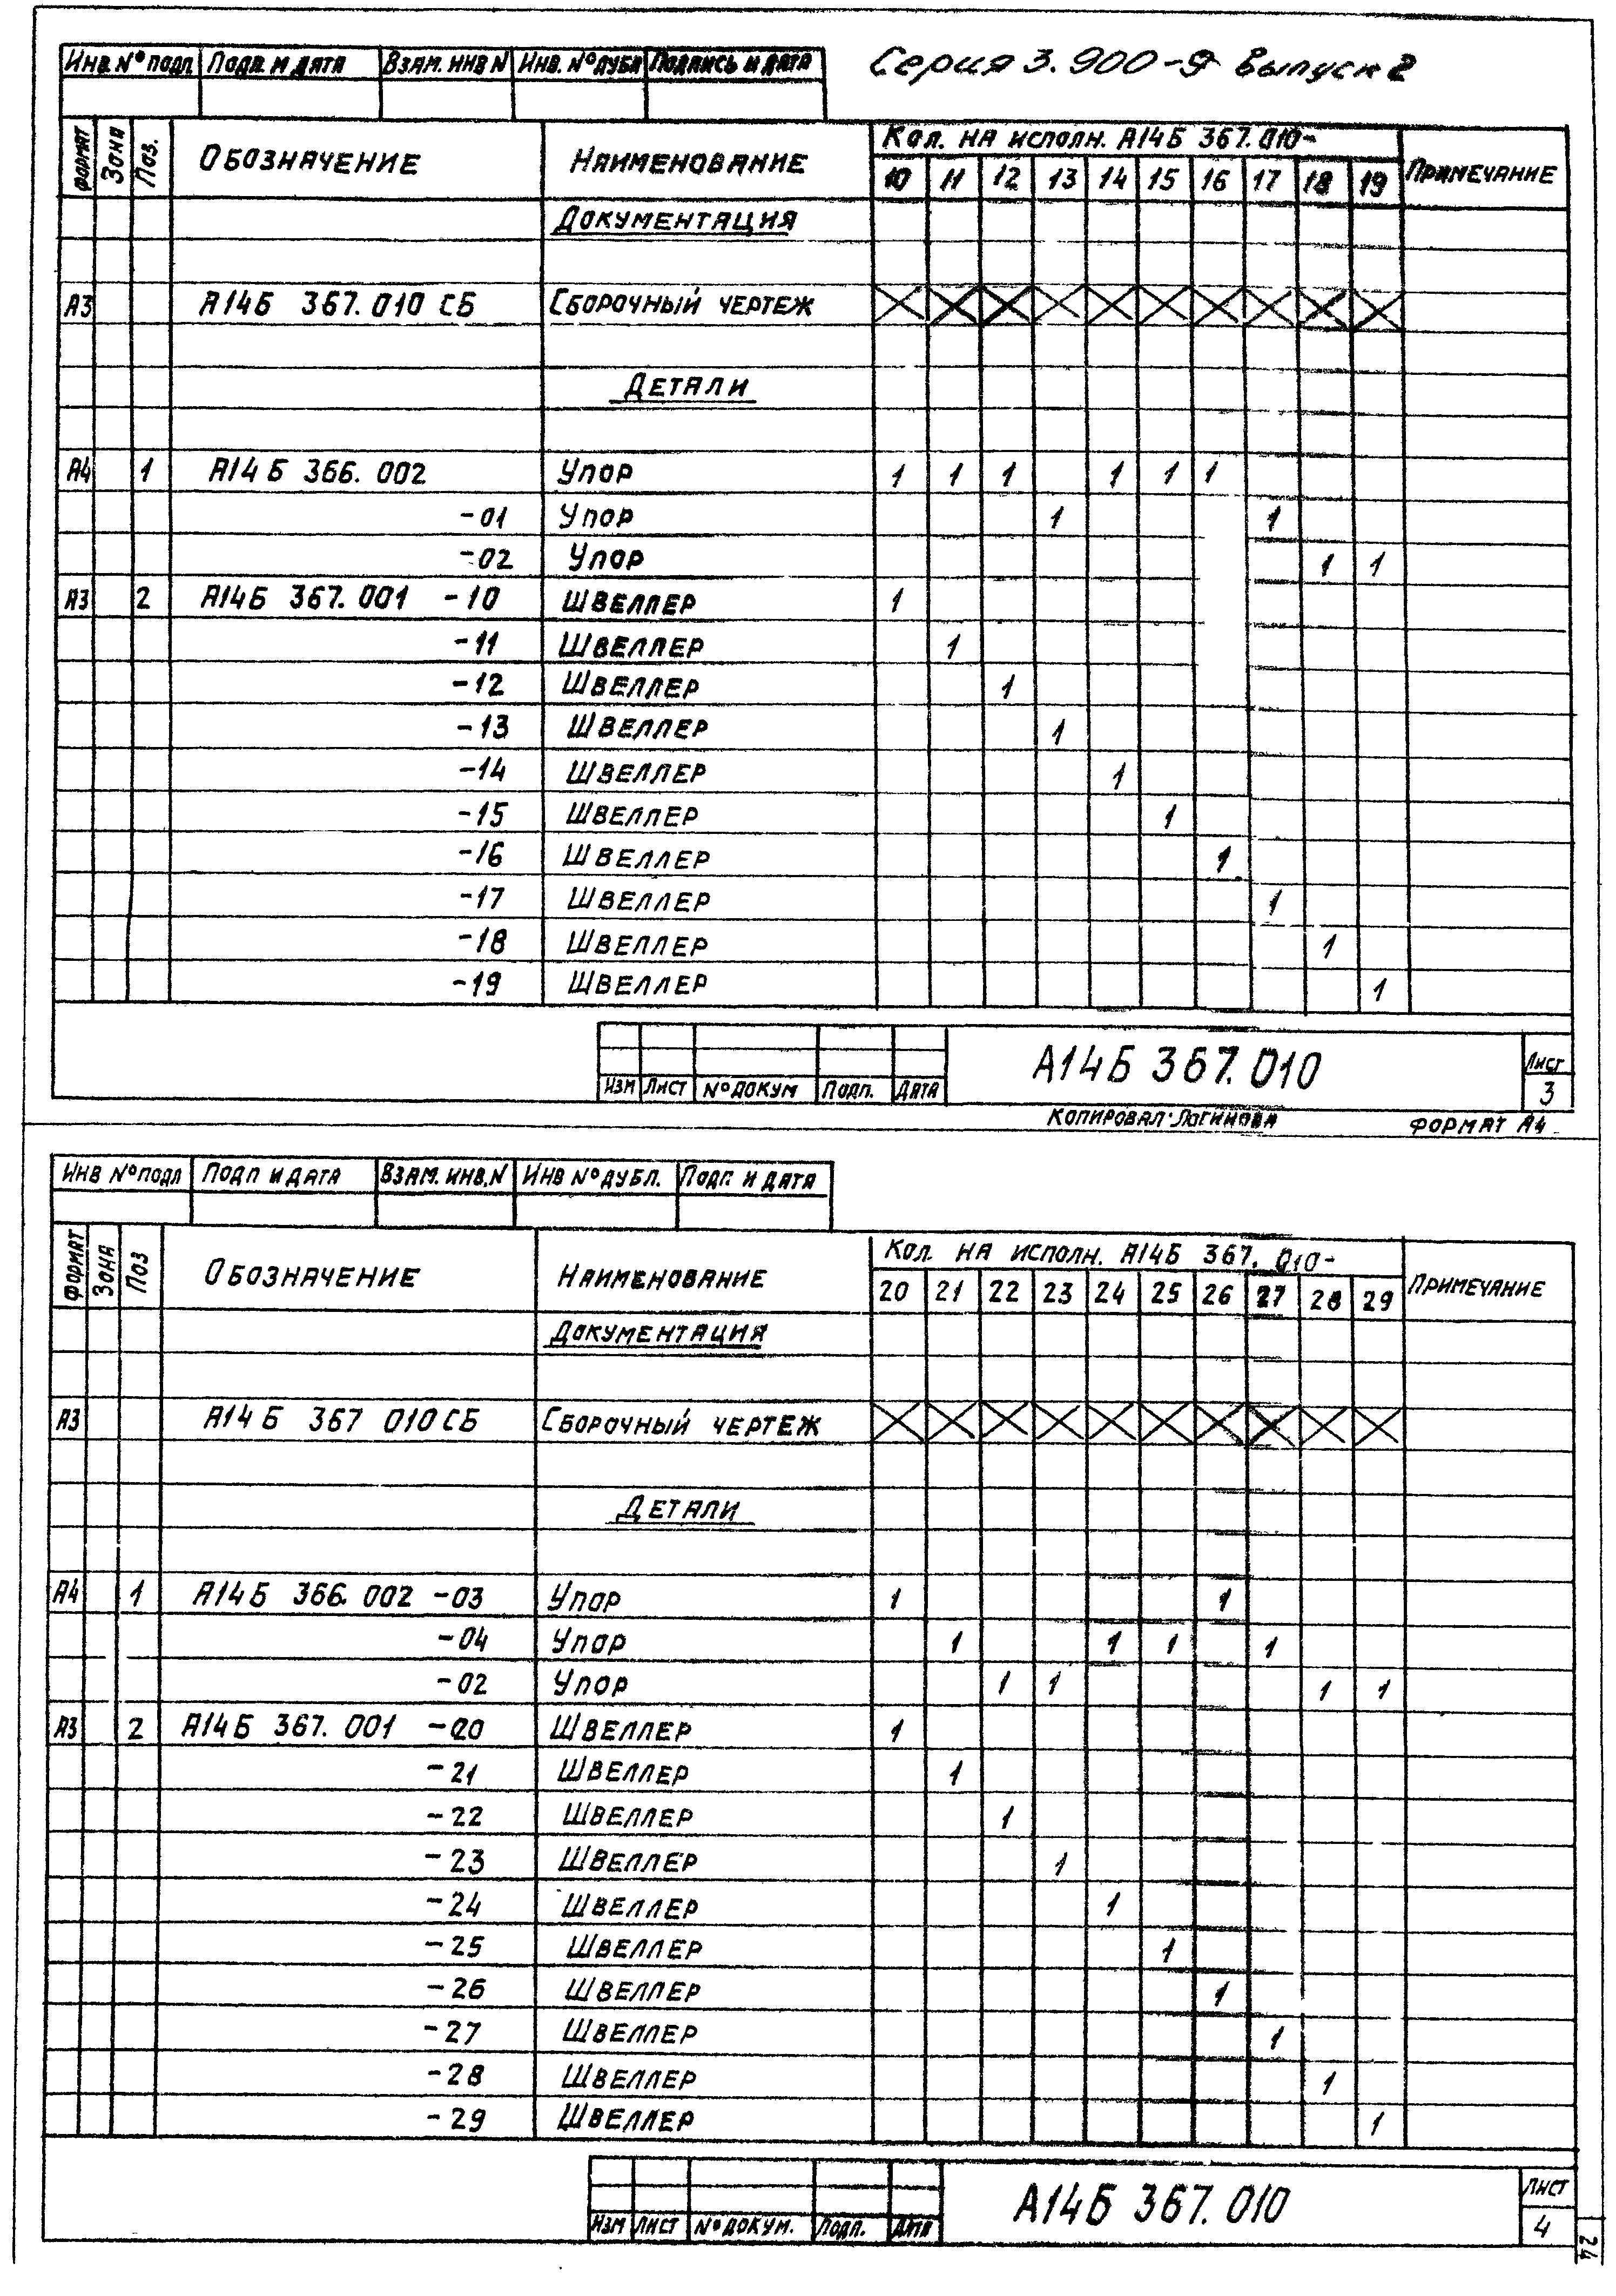 Серия 3.900-9 выпуск 2
Инв. № подл. Подп. и дата Взам. инв. N Инв. № дубл Подпись и дата
Формат Зона Поз. Обозначение Наименование Кол. на исполн. А14Б 367.010- Примечание
10 11 12 13 14 15 16 17 18 19
Документация
А3 А14Б 367.010 СБ Сборочный чертеж
Детали
А4 1 А14Б 366.002 Упор 1 1 1 1 1 1
-01 Упор 1 1
-02 Упор 1 1
А3 2 А14Б 367.001 -10 Швеллер 1
-11 Швеллер 1
-12 Швеллер 1
-13 Швеллер 1
-14 Швеллер 1
-15 Швеллер 1
-16 Швеллер 1
-17 Швеллер 1
-18 Швеллер 1
-19 Швеллер 1
А14Б 367.010 Лист
Изм Лист № докум Подп. Дата 3
Копировал: Логинова Формат А4
Инв № подл Подп и дата Взам. инв. N Инв № дубл. Подп и дата
Формат Зона Поз Обозначение Наименование Кол. на исполн. А14Б 367. 010- Примечание
20 21 22 23 24 25 26 27 28 29
Документация
А3 А14Б 367 010 СБ Сборочный чертеж
Детали
А4 1 А14Б 366.002 -03 Упор 1 1
-04 Упор 1 1 1 1
-02 Упор 1 1 1 1
А3 2 А14Б 367.001 -20 Швеллер 1
-21 Швеллер 1
-22 Швеллер 1
-23 Швеллер 1
-24 Швеллер 1
-25 Швеллер 1
-26 Швеллер 1
-27 Швеллер 1
-28 Швеллер 1
-29 Швеллер 1
А14Б 367.010 Лист
Изм Лист № докум. Подп. Дата 4
24